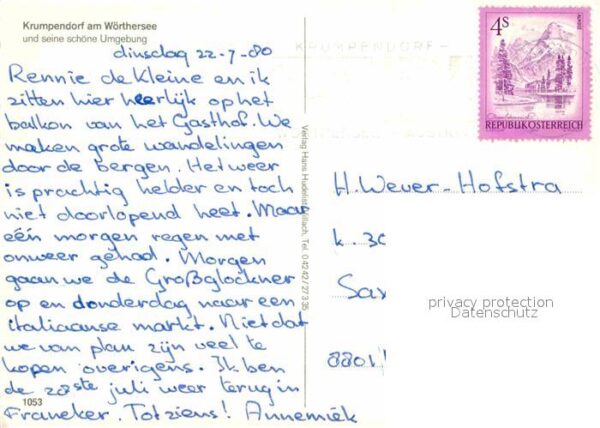 Krumpendorf am Wörthersee
und seine schöne Umgebung
dinsdag 22-7-80
Rennie de Kleine en ik
zitten hier heerlijk op het
balkon van het Gasthof. We
maken grote wandelingen
door de bergen. Het weer
is prachtig helder en toch
niet doorlopend heet. Maar
één morgen regen met
onweer gehad. Morgen
gaan we de Großglockner
op en donderdag naar een
Italiaanse markt. Niet dat
we van plan zijn veel te
kopen overigens. Ik ben
de 28ste juli weer terug in
Franeker. Tot ziens! Annemiek
1053
Verlag Hans Huderlist, Villach, Tel. 04242/27335
KRUMPENDORF-
4S
ALMSEE
REPUBLIK ÖSTERREICH
H. Wever-Hofstra
k. 30
Sax
8801
privacy protection
Datenschutz